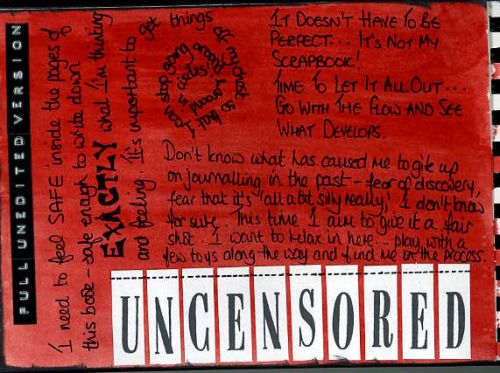 FULL UNEDITED VERSION
I need to feel SAFE inside the pages of
this book - safe enough to write down
EXACTLY what I'm thinking
and feeling. It's important to
get things off my chest so that I can stop going around & around in circles!
IT DOESN'T HAVE TO BE
PERFECT... IT'S NOT MY
SCRAPBOOK!
TIME TO LET IT ALL OUT....
GO WITH THE FLOW AND SEE
WHAT DEVELOPS.
Don't know what has caused me to give up
on journalling in the past - fear of discovery,
fear that it's 'all a bit silly really,' I don't know
for sure. This time I aim to give it a fair
shot. I want to relax in here... play with a
few toys along the way and find me in the process.
UNCENSORED